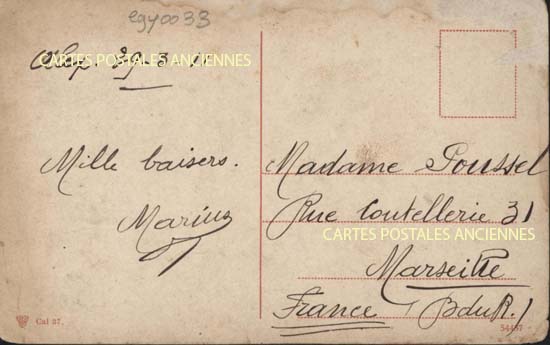 egy0033
29-3
CARTES POSTALES ANCIENNES
Mille baisers.
Marius
Madame Poussel
Rue Coutellerie 31
CARTES POSTALES ANCIENNES
Marseille
France B du R.
Cal 37.
54437